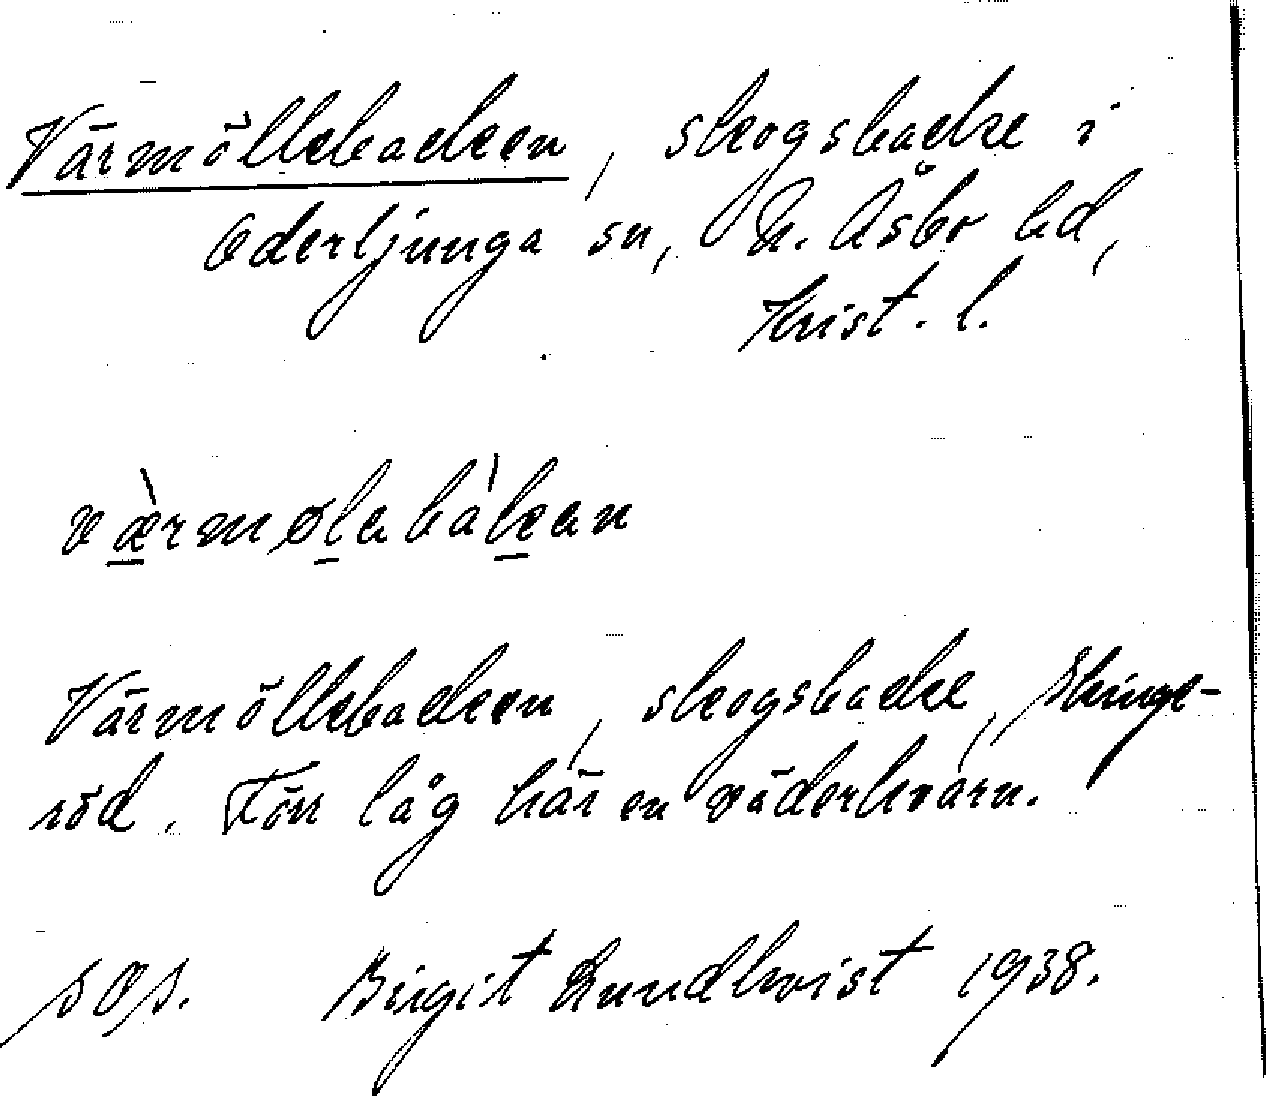 Värmöllebacken, skogsbacke i
Oderljunga sn, N. Åsbo hd,
Krist. l.
værmølebàkan
Värmöllebacken, skogsbacke, Skinge-
röd. Förr låg här en väderkvarn.
SOS. Birgit Lundkvist 1938.